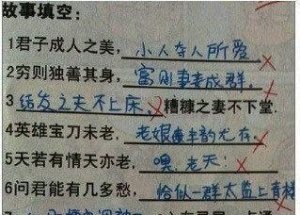 故事填空：
1君子成人之美，小人夺人所爱
2穷则独善其身，富则妻妾成群，
3 结发之夫不上床，糟糠之妻不下堂.
4英雄宝刀未老，老娘丰韵尤存，
5天若有情天亦老，嘿，老天！
6问君能有几多愁，恰似一群太监上青楼